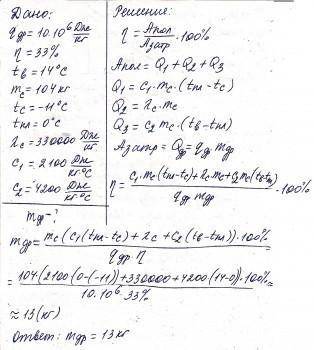 Дано:
qдр = 10·10⁶ Дж/кг
η = 33%
tв = 14°C
mс = 104 кг
tс = -11°C
tпл = 0°C
λс = 330000 Дж/кг
c₁ = 2100 Дж/кг·°C
c₂ = 4200 Дж/кг·°C
mдр - ?
Решение:
η = Aпол/Aзатр · 100%
Aпол = Q₁ + Q₂ + Q₃
Q₁ = c₁ mс · (tпл - tс)
Q₂ = λс · mс
Q₃ = c₂ mс · (tв - tпл)
Aзатр = Qдр = qдр mдр
η = c₁ mс (tпл - tс) + λс mс + c₂ mс (tв - tпл) / qдр mдр · 100%
mдр = mс (c₁ (tпл - tс) + λс + c₂ (tв - tпл)) · 100% / qдр η =
= 104 (2100 (0 - (-11)) + 330000 + 4200 (14 - 0)) · 100% / 10·10⁶ · 33% =
≈ 13 (кг)
Ответ: mдр = 13 кг